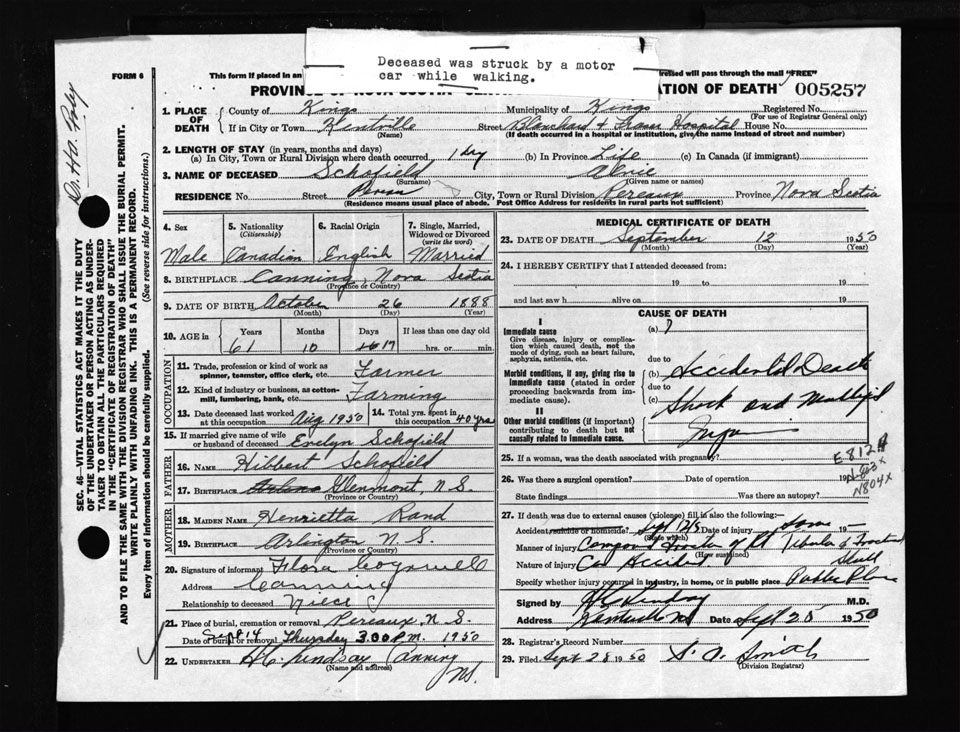 Deceased was struck by a motor
car while walking.
FORM 6
This form if placed in an
dressed will pass through the mail "FREE"
PROVINCE OF NOVA SCOTIA
ATION OF DEATH
005257
1. PLACE OF DEATH
County of Kings
Municipality of Kings
Registered No.
(For use of Registrar General only)
If in City or Town Kentville
(Name)
Street Blanchard & Fraser Hospital House No.
(If death occurred in a hospital or institution, give the name instead of street and number)
2. LENGTH OF STAY (in years, months and days)
(a) In City, Town or Rural Division where death occurred 1 day (b) In Province Life (c) In Canada (if immigrant)
3. NAME OF DECEASED Schofield
(Surname)
(Given name or names)
RESIDENCE No. Street City, Town or Rural Division Pereaux Province Nova Scotia
(Residence means usual place of abode. Post Office Address for residents in rural parts not sufficient)
4. Sex
Male
5. Nationality
(Citizenship)
Canadian
6. Racial Origin
English
7. Single, Married, Widowed or Divorced
(write the word)
Married
8. BIRTHPLACE Canning Nova Scotia
(Province or Country)
9. DATE OF BIRTH October 26 1888
(Month) (Day) (Year)
10. AGE in
Years Months Days If less than one day old
61 10 17 hrs. or min.
OCCUPATION
11. Trade, profession or kind of work as
spinner, teamster, office clerk, etc. Farmer
12. Kind of industry or business, as cotton-
mill, lumbering, bank, etc. Farming
13. Date deceased last worked
at this occupation Aug 1950
14. Total yrs. spent in
this occupation 40 yrs
15. If married give name of wife
or husband of deceased Evelyn Schofield
FATHER
16. NAME Hibbert Schofield
17. BIRTHPLACE Glenmont, N.S.
(Province or Country)
MOTHER
18. MAIDEN NAME Henrietta Rand
19. BIRTHPLACE Arlington N.S.
(Province or Country)
20. Signature of informant Flora Cogswell
Address Canning
Relationship to deceased Niece
21. Place of burial, cremation or removal Pereaux, N.S.
Date of burial or removal Sept 14 Thursday 3.00 P.M. 1950
22. UNDERTAKER H C Lindsay Canning
(Name and address)
N.S.
MEDICAL CERTIFICATE OF DEATH
23. DATE OF DEATH September 12 1950
(Month) (Day) (Year)
24. I HEREBY CERTIFY that I attended deceased from:
19 to 19
and last saw h alive on 19
CAUSE OF DEATH
I
Immediate cause
Give disease, injury or complica-
tion which caused death, not the
mode of dying, such as heart failure,
asphyxia, asthenia, etc.
(a)
due to
Morbid conditions, if any, giving rise to
immediate cause (stated in order
proceeding backwards from im-
mediate cause).
(b) Accidental Death
due to
(c) Shock and Multiple
II
Other morbid conditions (if important)
contributing to death but not
causally related to immediate cause.
25. If a woman, was the death associated with pregnancy?
E812
26. Was there a surgical operation? Date of operation 19
N804x
State findings Was there an autopsy?
27. If death was due to external causes (violence) fill in also the following:—
Accident, suicide or homicide? Date of injury Same 19
(State which)
Manner of injury
(How sustained)
Skull
Nature of injury Car Accident
Specify whether injury occurred in industry, in home, or in public place Public Place
Signed by M.D.
Address Kentville NS Date Sept 25 1950
28. Registrar's Record Number
29. Filed Sept 28 1950 Smith
(Division Registrar)
SEC. 46—VITAL STATISTICS ACT MAKES IT THE DUTY
OF THE UNDERTAKER OR PERSON ACTING AS UNDER-
TAKER TO OBTAIN ALL THE PARTICULARS REQUIRED
IN THE "CERTIFICATE OF REGISTRATION OF DEATH"
AND TO FILE THE SAME WITH THE DIVISION REGISTRAR WHO SHALL ISSUE THE BURIAL PERMIT.
WRITE PLAINLY WITH UNFADING INK. THIS IS A PERMANENT RECORD.
Every item of information should be carefully supplied. (See reverse side for instructions.)